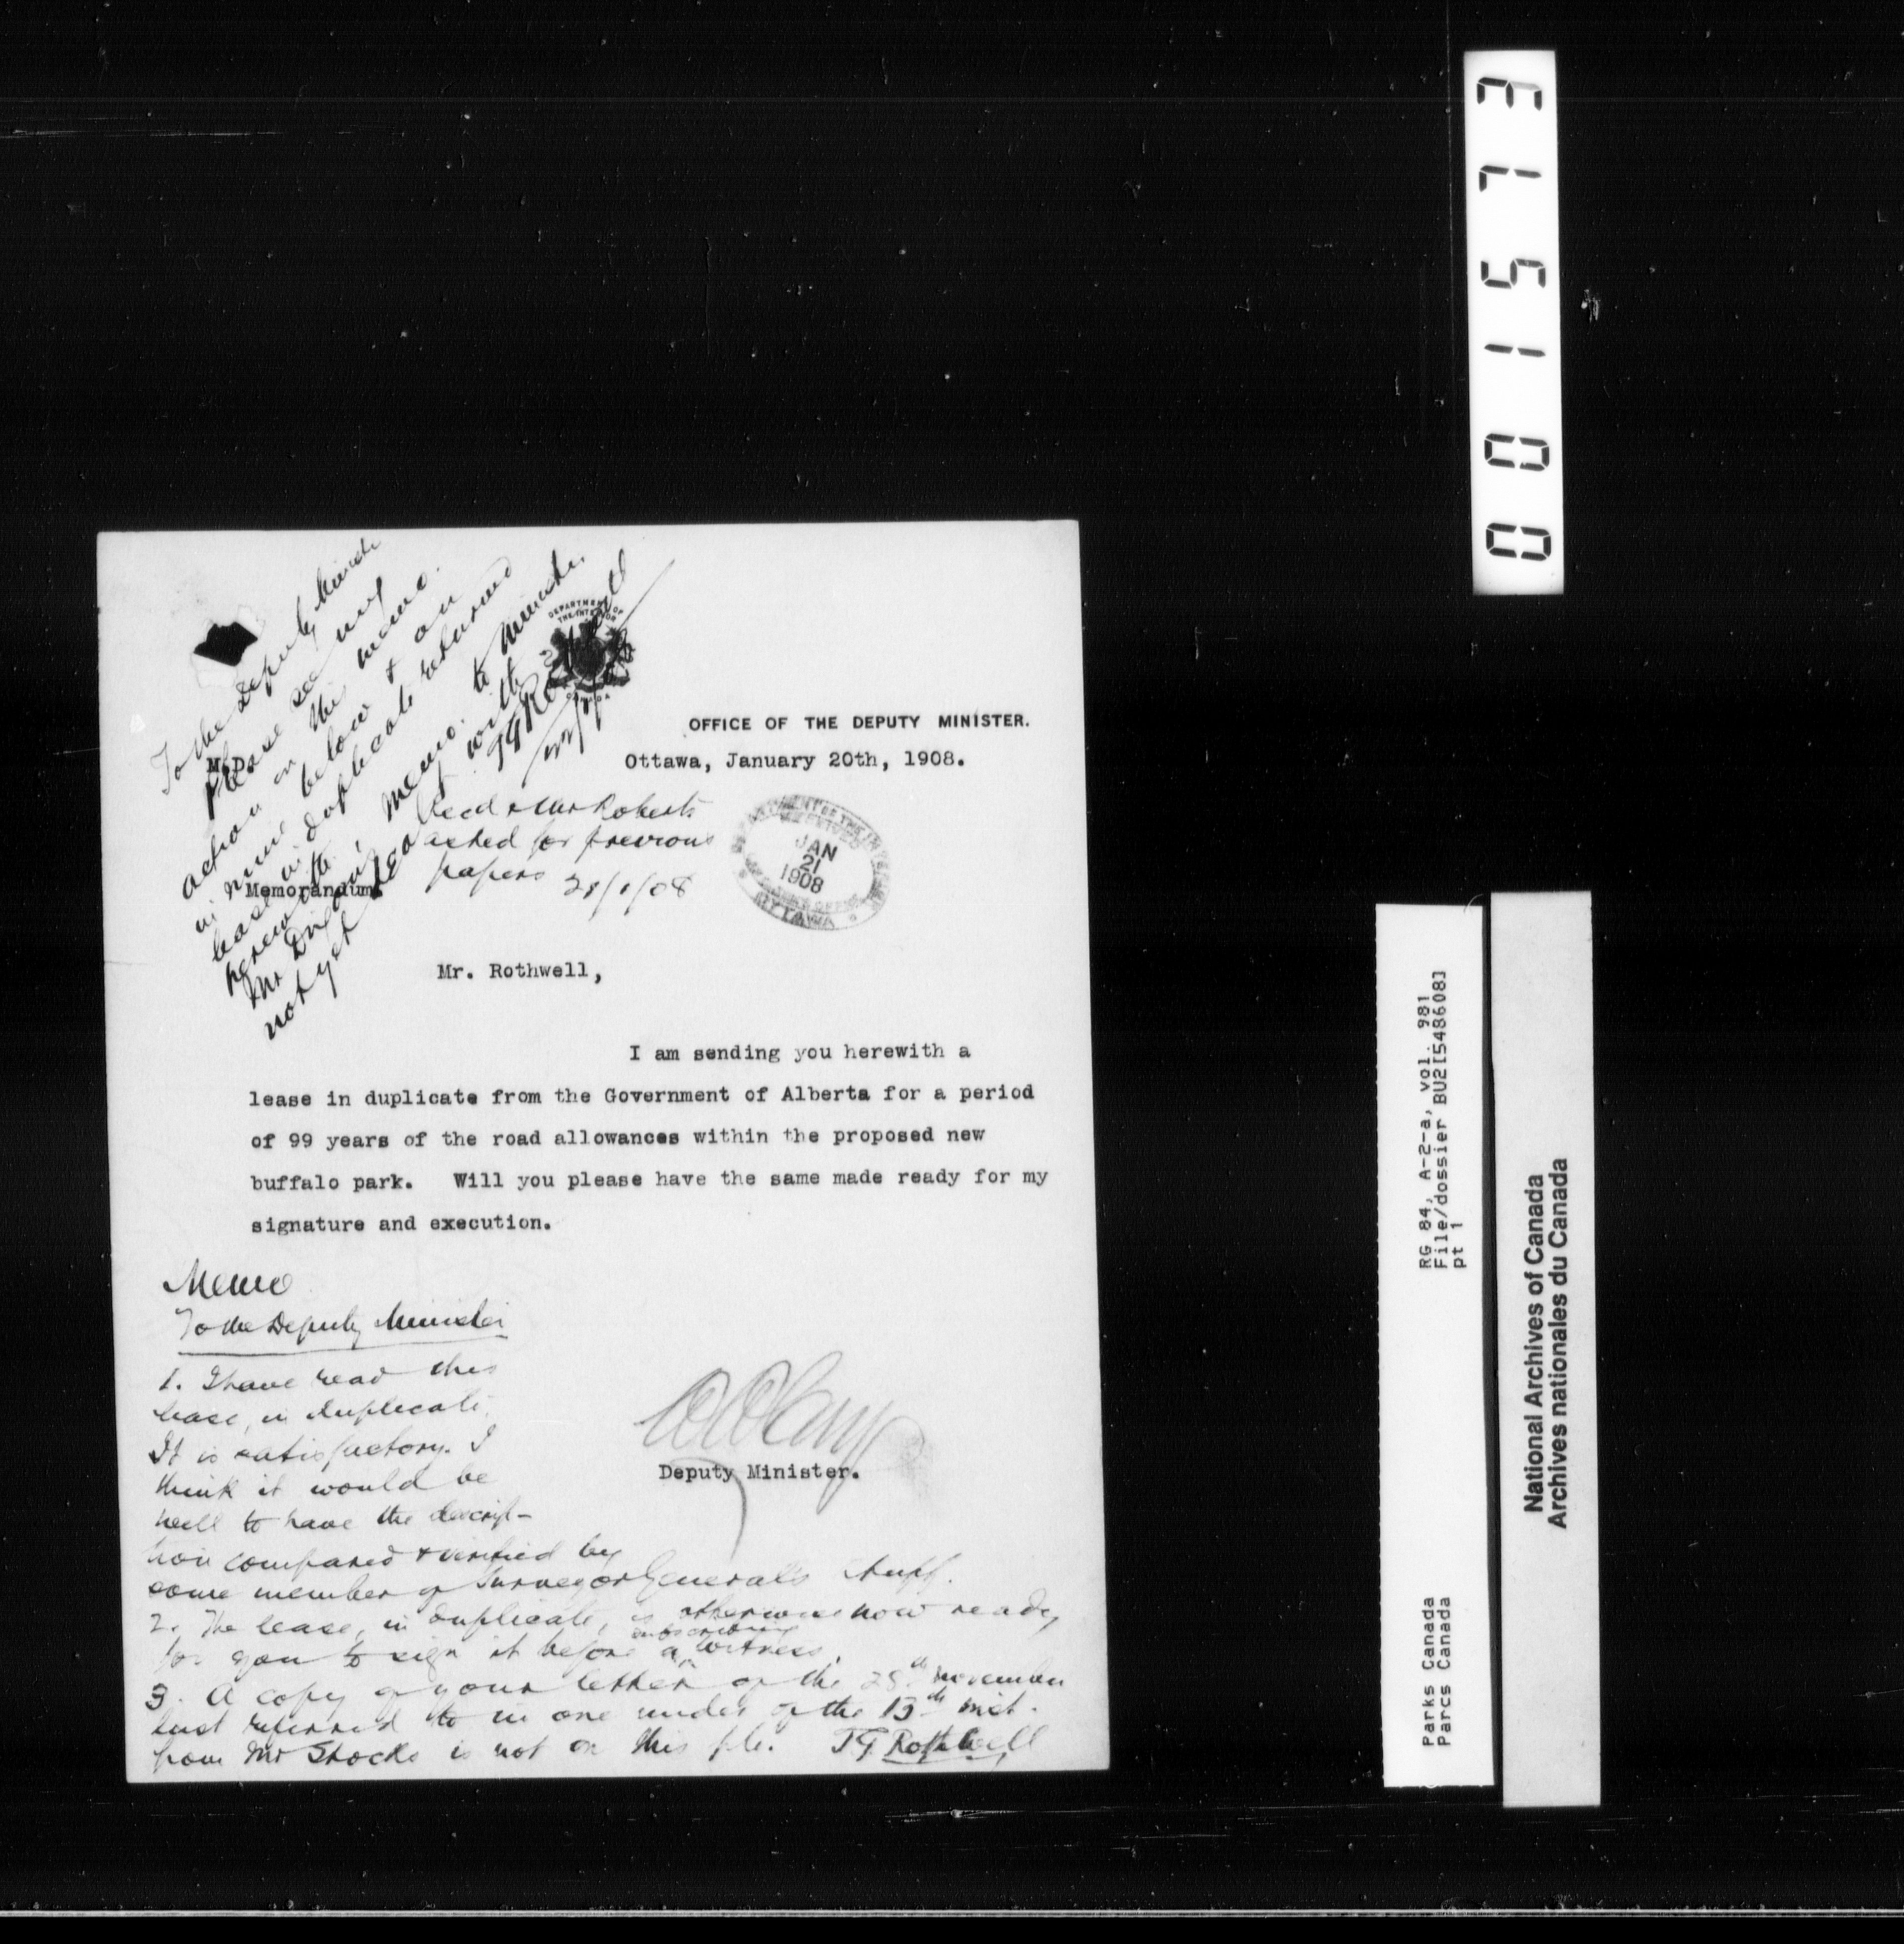 To the Deputy Minister
Please see my
action on this memo.
in mine below & on
lease in duplicate returned
herewith.
Memo. to Minister
not yet
with
DEPARTMENT OF
THE INTERIOR
CANADA
OFFICE OF THE DEPUTY MINISTER.
M.D.
Ottawa, January 20th, 1908.
Recd & Mr Roberts
asked for previous
papers 21/1/08
JAN
21
1908
OTTAWA
Memorandum
Mr. Rothwell,
I am sending you herewith a
lease in duplicate from the Government of Alberta for a period
of 99 years of the road allowances within the proposed new
buffalo park. Will you please have the same made ready for my
signature and execution.
Memo
To the Deputy Minister
1. I have read this
lease, in duplicate.
It is satisfactory. I
think it would be
well to have the descrip-
tion compared & verified by
some member of Surveyor General's staff.
2. The lease, in duplicate, is otherwise now ready
for you to sign it before a subscribing witness.
3. A copy of your letter of the 28th November
last referred to in one under of the 13th inst.
from Mr Stocks is not on this file. T G Rothwell
Deputy Minister.
001573
RG 84, A-2-a, vol. 981
File/dossier BU2[548608]
pt 1
Parks Canada
Parcs Canada
National Archives of Canada
Archives nationales du Canada